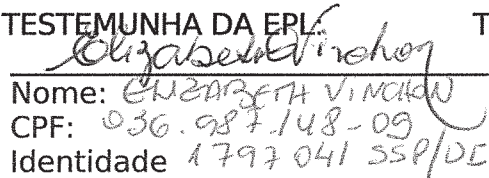 TESTEMUNHA DA EPL: T
Elizabeth Vinchon
Nome: ELIZABETH VINCHON
CPF: 036.987.148-09
Identidade 1797041 SSP/DF